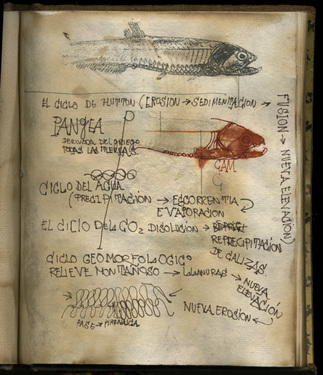 EL CICLO DE HUTTON (EROSION → SEDIMENTACION →
FUSION → NUEVA ELEVACION)
PANGEA
DERIVADA DEL GRIEGO
TODAS LAS TIERRAS
CICLO DEL AGUA
(PRECIPITACION → ESCORRENTIA
EVAPORACION
EL CICLO DEL CO2 DISOLUCION →
REPRECIPITACION
DE CALIZAS
CICLO GEOMORFOLOGICO
RELIEVE MONTAÑOSO → LLANURAS → NUEVA
ELEVACIÓN
NUEVA EROSION ←
FASE →